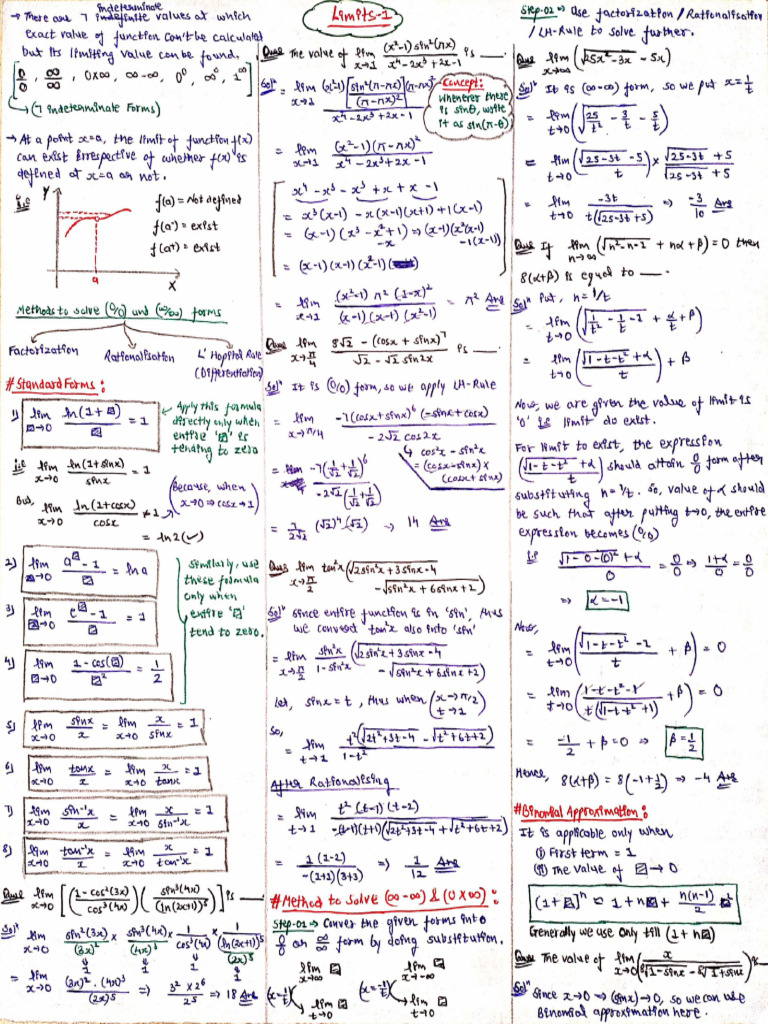 Limits-1
→ There are 7 indeterminate indefinite values at which
exact value of function can't be calculated
but its limiting value can be found.
[0/0, ∞/∞, 0×∞, ∞-∞, 0⁰, ∞⁰, 1^∞]
(7 indeterminate Forms)
→ At a point x=a, the limit of function f(x)
can exist irrespective of whether f(x) is
defined at x=a or not.
i.e
Y
f(a) = Not defined
f(a⁻) = exist
f(a⁺) = exist
a
X
Methods to solve (0/0) and (∞/∞) forms
Factorization
Rationalisation
L' Hopital Rule
(Differentiation)
# Standard Forms:
1) lim ☐→0 ln(1+☐)/☐ = 1
Apply this formula
directly only when
entire '☐' is
tending to zero
i.e lim x→0 ln(1+sinx)/sinx = 1
But, lim x→0 ln(1+cosx)/cosx ≠ 1
(Because, when
x→0 ⇒ cosx→1)
= ln2 (✓)
2) lim ☐→0 (a^☐ - 1)/☐ = ln a
3) lim ☐→0 (e^☐ - 1)/☐ = 1
4) lim ☐→0 (1 - cos(☐))/☐² = 1/2
Similarly, use
these formula
only when
entire '☐'
tend to zero.
5) lim x→0 sinx/x = lim x→0 x/sinx = 1
6) lim x→0 tanx/x = lim x→0 x/tanx = 1
7) lim x→0 sin⁻¹x/x = lim x→0 x/sin⁻¹x = 1
8) lim x→0 tan⁻¹x/x = lim x→0 x/tan⁻¹x = 1
Ques lim x→0 [((1-cos²(3x))/cos³(4x)) (sin³(4x)/(ln(2x+1))⁵)] is
Solⁿ lim x→0 sin²(3x)/(3x)² × sin³(4x)/(4x)³ × 1/cos³(4x) × 1/(ln(2x+1))⁵/(2x)⁵
↓1 ↓1 ↓1 ↓1
= lim x→0 (3x)²·(4x)³/(2x)⁵ ⇒ 3²×2⁶/2⁵ ⇒ 18 Ans
Ques The value of lim x→1 (x²-1)sin²(πx)/(x⁴-2x³+2x-1) is ___.
Solⁿ = lim x→1 (x²-1)[sin²(π-πx)/(π-πx)²](π-πx)²/(x⁴-2x³+2x-1)
Concept:
Whenever there
is sinθ, write
it as sin(π-θ)
= lim x→1 (x²-1)(π-πx)²/(x⁴-2x³+2x-1)
x⁴ - x³ - x³ + x + x - 1
= x³(x-1) - x(x-1)(x+1) + 1(x-1)
= (x-1)(x³ - x² + 1) ⇒ (x-1)(x²(x-1)
-x -1(x-1))
= (x-1)(x-1)(x²-1)
= lim x→1 (x²-1) π² (1-x)²/((x-1)(x-1)(x²-1)) = π² Ans
Ques lim x→π/4 (8√2 - (cosx + sinx)⁷)/(√2 - √2 sin2x) is ___.
Solⁿ It is (0/0) form, so we apply LH-Rule
= lim x→π/4 -7(cosx+sinx)⁶(-sinx+cosx)/(-2√2 cos2x)
↳ cos²x - sin²x
= (cosx-sinx)×
(cosx+sinx)
= lim -7(1/√2 + 1/√2)⁶/(-2√2(1/√2 + 1/√2))
= 7/(2√2) (√2)⁴(√2) ⇒ 14 Ans
Ques lim x→π/2 tan²x(√(2sin²x+3sinx-4)
-√(sin²x+6sinx+2))
Solⁿ Since entire function is in 'sin', thus
we convert tan²x also into 'sin'
= lim x→π/2 sin²x/(1-sin²x) (√(2sin²x+3sinx-4)
-√(sin²x+6sinx+2))
Let, sinx=t, thus when (x→π/2
t→1)
So,
= lim t→1 t²(√(2t²+3t-4) - √(t²+6t+2))/(1-t²)
After Rationalising
= lim t→1 t²(t-1)(t-2)/(-(t-1)(t+1)(√(2t²+3t-4)+√(t²+6t+2)))
= 1(1-2)/(-(1+1)(3+3)) ⇒ 1/12 Ans
# Method to Solve (∞-∞) & (0×∞):
Step-01 → Convert the given forms into
0/0 or ∞/∞ form by doing substitution.
lim x→∞ ☐ lim x→-∞ ☐
(x=1/t) → lim t→0 ☐ (x=-1/t) → lim t→0 ☐
Step-02 ⇒ Use factorization / Rationalisation
/ LH-Rule to solve further.
Ques lim x→∞ (√(25x²-3x) - 5x)
Solⁿ It is (∞-∞) form, so we put x=1/t
= lim t→0 (√(25/t² - 3/t) - 5/t)
= lim t→0 (√(25-3t) - 5)/t × (√(25-3t) + 5)/(√(25-3t) + 5)
= lim t→0 -3t/(t(√(25-3t)+5)) ⇒ -3/10 Ans
Ques If lim n→∞ (√(n²-n-1) + nα + β) = 0 then
8(α+β) is equal to ___.
Solⁿ Put, n=1/t
= lim t→0 (√(1/t² - 1/t - 1) + α/t + β)
= lim t→0 ((√(1-t-t²) + α)/t) + β
Now, we are given the value of limit is
'0' i.e limit do exist.
For limit to exist, the expression
((√(1-t-t²) + α)/t) should attain 0/0 form after
substituting n=1/t. So, value of α should
be such that after putting t→0, the entire
expression becomes (0/0)
i.e (√(1-0-(0)²) + α)/0 = 0/0 ⇒ (1+α)/0 = 0/0
⇒ α=-1
Now,
= lim t→0 ((√(1-t-t²) - 1)/t + β) = 0
= lim t→0 ((1-t-t²-1)/(t(√(1-t-t²)+1)) + β) = 0
= -1/2 + β = 0 ⇒ β=1/2
Hence, 8(α+β) = 8(-1+1/2) ⇒ -4 Ans
# Binomial Approximation:
It is applicable only when
(i) First term = 1
(ii) The value of ☐→0
(1+☐)ⁿ ≈ 1+n☐ + n(n-1)/2 ☐²
Generally we use only till (1+n☐)
Ques The value of lim x→0 (x/(⁸√(1-sinx) - ⁸√(1+sinx))) is
Solⁿ Since x→0 ⇒ (sinx)→0, so we can use
Binomial approximation here.